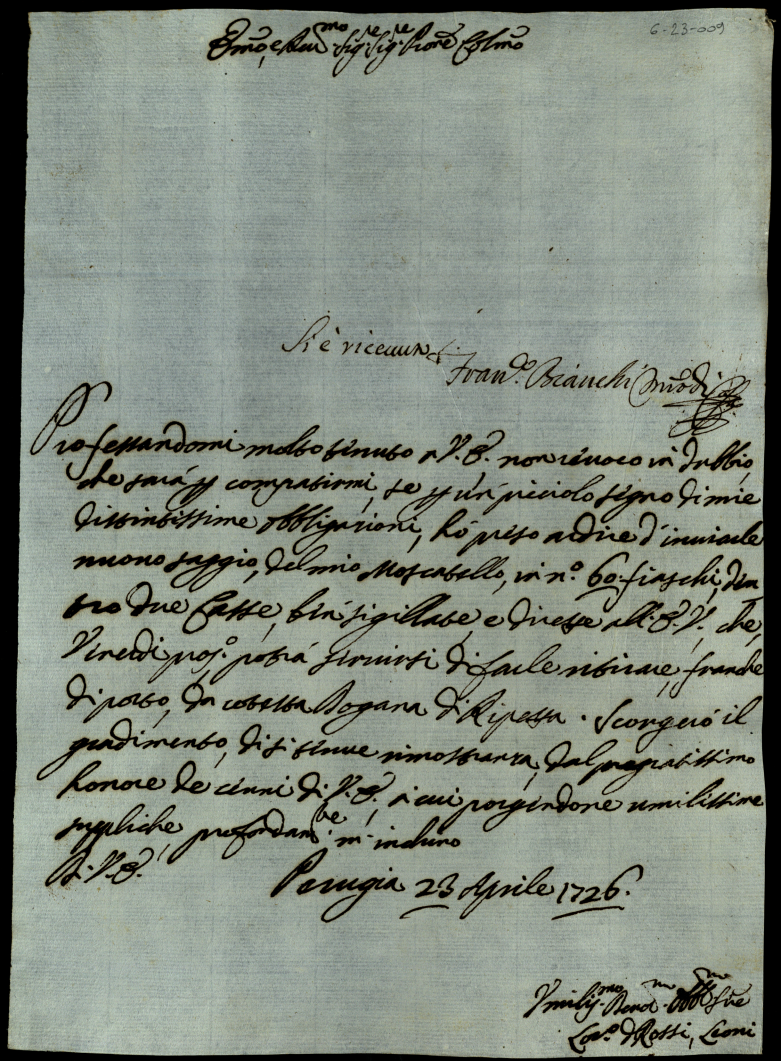 6-23-009
Em̃o, e Reu.mo Sig.re Sig.re Pron̄e Col̄mo
Si è riceuuta
Fran.co Bianchi
Professandomi molto tenuto a V. E. non riuoco in dubbio,
che sarà p compatirmi, se p un picciolo segno di mie
distintissime obbligazioni, hò preso ardire d'inuiarle
nuouo saggio, del mio Moscatello, in n.o 60 fiaschi, den
tro due Casse, ben sigillate, e dirette all'E. V., che,
Venerdi pros.o potrà seruirsi di farle ritirare, franche
di porto, da cotesta Dogana di Ripetta. Scorgerò il
gradimento, di si tenue rimostranza, dal pregiatissimo
honore de cenni di V. E., à cui porgendone umilissime
suppliche, profondam.te m'inchino
D. V. E.
Perugia 23 Aprile 1726.
Vmiliss.mo Deuot.mo Obblig.mo Seruitore
de Rossi, Leoni